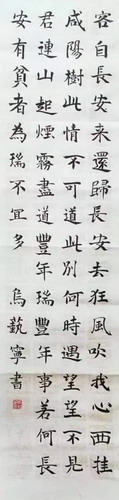 客自長安来還歸長安去狂風吹我心西挂
咸陽樹此情不可道此別何時遇望望不見
君連山起煙霧盡道豐年瑞豐年事若何長
安有貧者為瑞不宜多 烏藝寧書